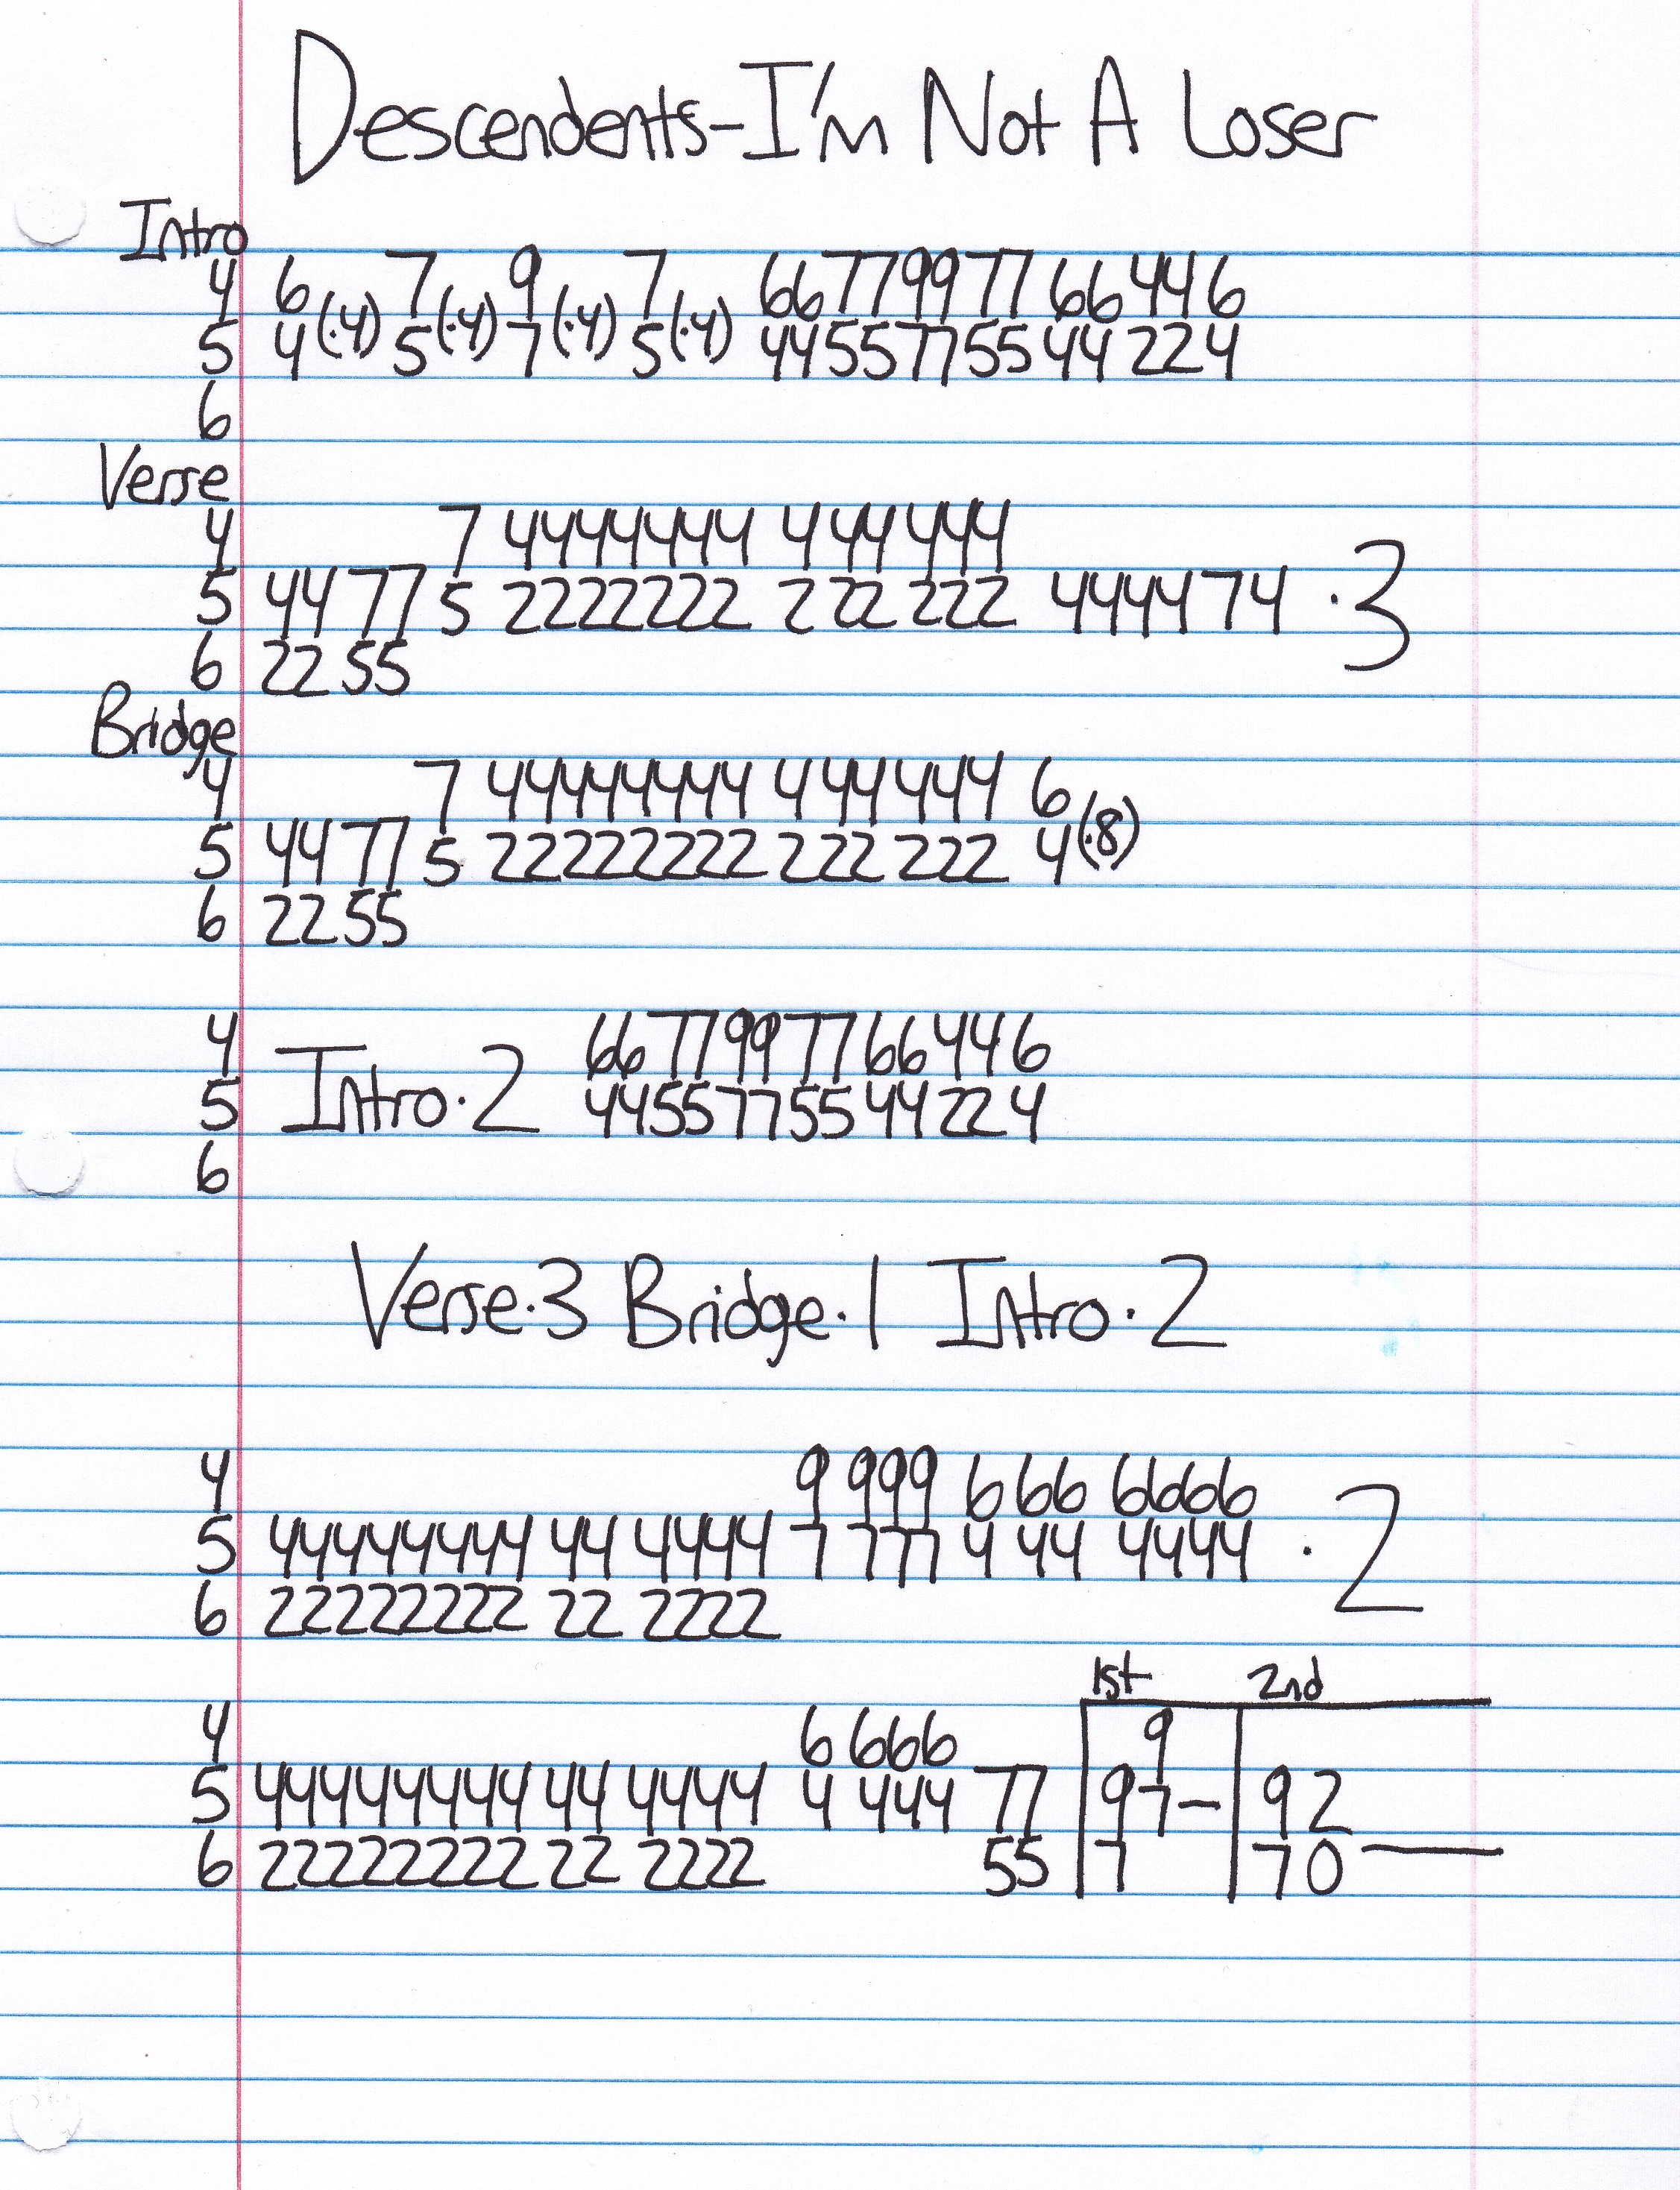 Descendents-I'm Not A Loser
Intro
4 6 7 9 7 66779977 66 44 6
5 4(·4) 5(·4) 7(·4) 5(·4) 44557755 44 22 4
6
Verse
4 7 4444444 4 44 444
5 44 77 5 2222222 2 22 222 4444 74 ·3
6 22 55
Bridge
4 7 44444444 4 44 444 6
5 44 77 5 22222222 222 222 4(·8)
6 22 55
4 66 77 99 77 66 44 6
5 Intro·2 44 55 77 55 44 22 4
6
Verse·3 Bridge·1 Intro·2
4 9 999 6 66 6666
5 44444444 44 4444 7 777 4 44 4444 ·2
6 22222222 22 2222
1st 2nd
4 6 666 9
5 44444444 44 4444 4 444 77 97– 92
6 22222222 22 2222 55 7 70 —